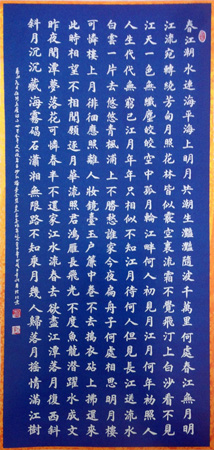 春江潮水連海平海上明月共潮生灩灩隨波千萬里何處春江無月明
江流宛轉繞芳甸月照花林皆似霰空裏流霜不覺飛汀上白沙看不見
江天一色無纖塵皎皎空中孤月輪江畔何人初見月江月何年初照人
人生代代無窮已江月年年只相似不知江月待何人但見長江送流水
白雲一片去悠悠青楓浦上不勝愁誰家今夜扁舟子何處相思明月樓
可憐樓上月徘徊應照離人妝鏡臺玉戶簾中卷不去擣衣砧上拂還來
此時相望不相聞願逐月華流照君鴻雁長飛光不度魚龍潛躍水成文
昨夜閒潭夢落花可憐春半不還家江水流春去欲盡江潭落月復西斜
斜月沉沉藏海霧碣石瀟湘無限路不知乘月幾人歸落月搖情滿江樹